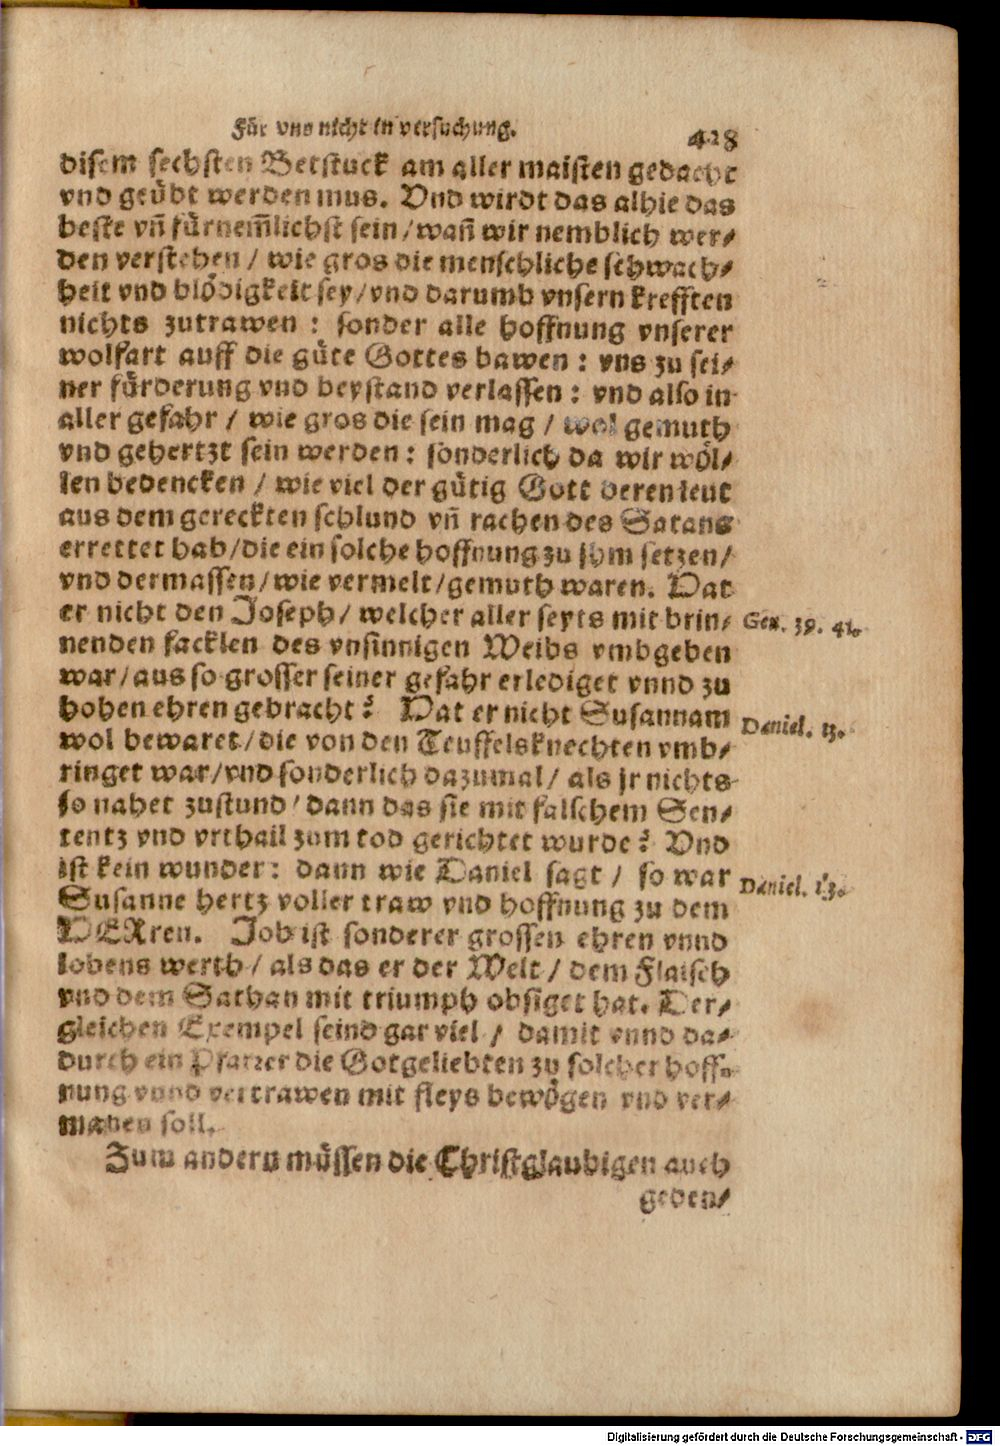 Für vns nicht in versuchung. 428
disem sechsten Betstuck am aller maisten gedacht
vnd geübt werden mus. Vnd wirdt das alhie das
beste vn̄ fürnem̄lichst sein / wan̄ wir nemblich wer⸗
den verstehen / wie gros die menschliche schwach⸗
heit vnd blödigkeit sey / vnd darumb vnsern krefften
nichts zutrawen : sonder alle hoffnung vnserer
wolfart auff die güte Gottes bawen : vns zu sei⸗
ner fürderung vnd beystand verlassen : vnd also in
aller gefahr / wie gros die sein mag / wol gemuth
vnd gehertzt sein werden : sonderlich da wir wöl⸗
len bedencken / wie viel der gütig Gott deren leut
aus dem gereckten schlund vn̄ rachen des Satans
errettet hab / die ein solche hoffnung zu jhm setzen /
vnd dermassen / wie vermelt / gemuth waren. Hat
er nicht den Joseph / welcher aller seyts mit brin⸗
Gen. 39. 41.
nenden facklen des vnsinnigen Weibs vmbgeben
war / aus so grosser seiner gefahr erlediget vnnd zu
hohen ehren gebracht? Hat er nicht Susannam
Daniel. 13.
wol bewaret / die von den Teuffelsknechten vmb⸗
ringet war / vnd sonderlich dazumal / als jr nichts
so nahet zustund / dann das sie mit falschem Sen⸗
tentz vnd vrthail zum tod gerichtet wurde? Vnd
ist kein wunder: dann wie Daniel sagt / so war
Daniel. 13.
Susanne hertz voller traw vnd hoffnung zu dem
HERren. Job ist sonderer grossen ehren vnnd
lobens werth / als das er der Welt / dem Flaisch
vnd dem Sathan mit triumph obsiget hat. Der⸗
gleichen Exempel seind gar viel / damit vnnd da⸗
durch ein Pfarrer die Gotgeliebten zu solcher hoff⸗
nung vnnd vertrawen mit fleys bewögen vnd ver⸗
manen soll.
Zum andern müssen die Christglaubigen auch
geden⸗
Digitalisierung gefördert durch die Deutsche Forschungsgemeinschaft - DFG